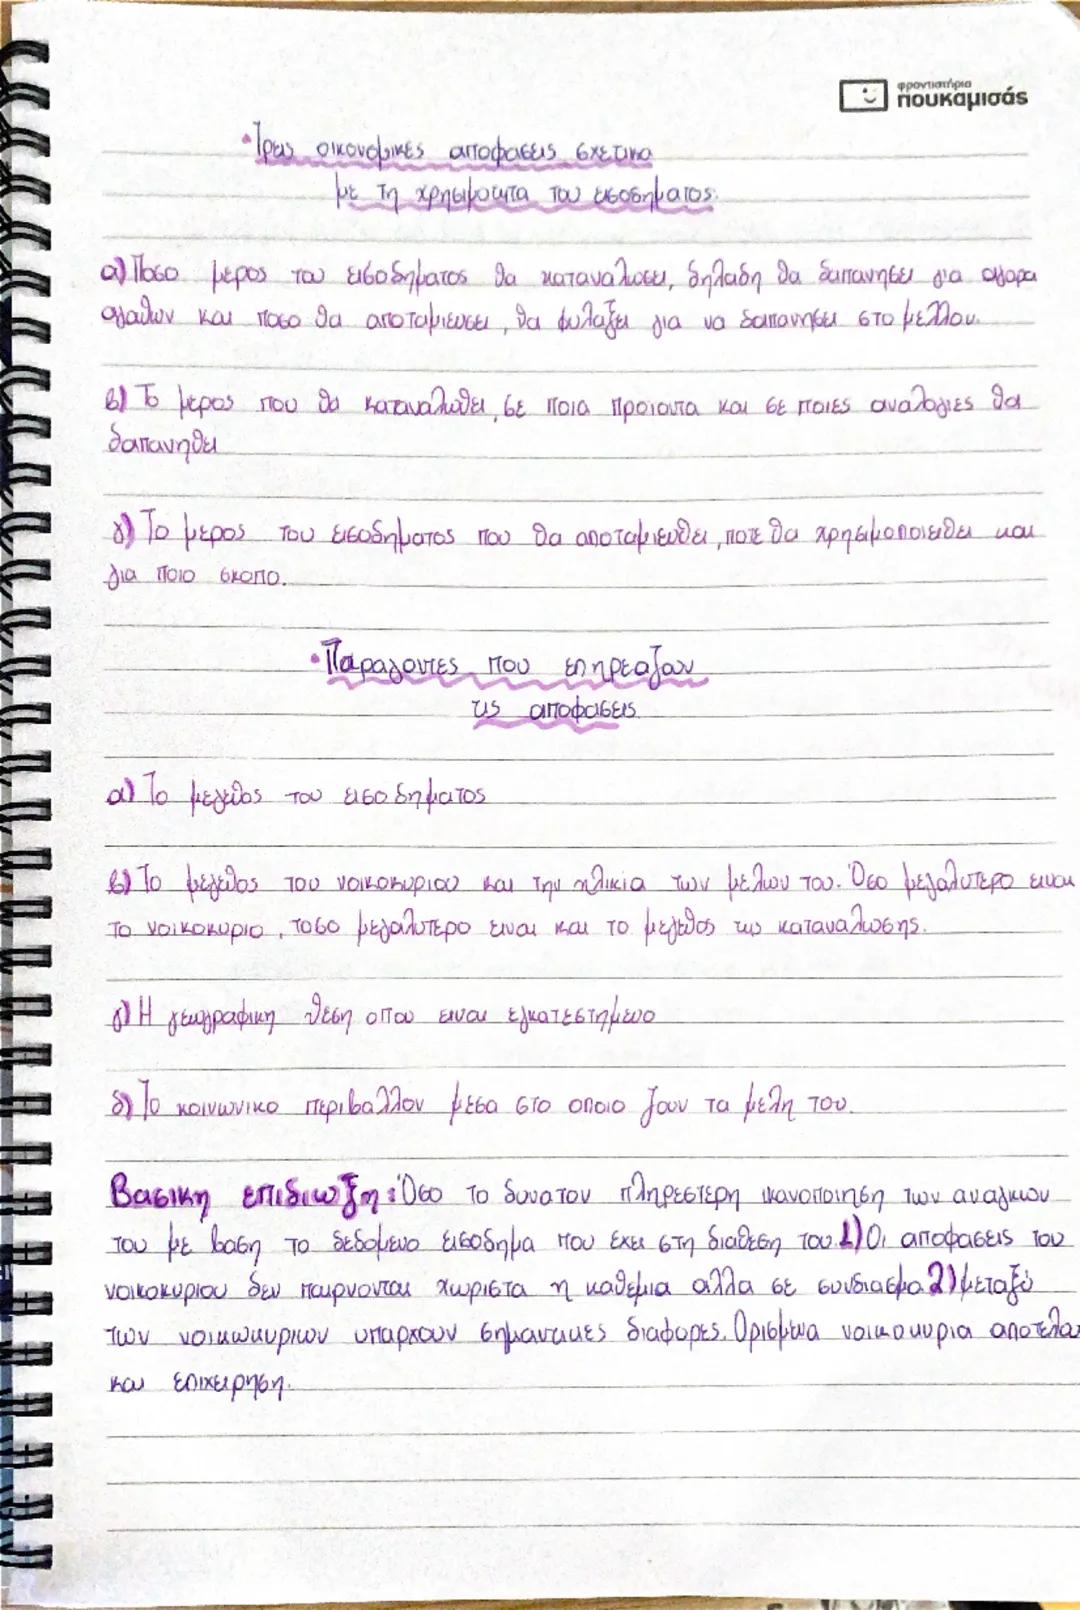 φροντιστήρια
πουκαμισάς
•Τρεις οικονομικες αποφασεις σχετικα
με τη χρησιμοτητα του εισοδηματος.
α) Ποσο μερος του εισοδηματος θα καταναλωσει, δηλαδη θα δαπανησει για αγορα
αγαθων και ποσο θα αποταμιευσει, θα φυλαξει για να δαπανησει στο μελλον.
β) Το μερος που θα καταναλωθει, σε ποια προιοντα και σε ποιες αναλογιες θα
δαπανηθει
γ) Το μερος του εισοδηματος που θα αποταμιευθει, ποτε θα χρησιμοποιειθει και
για ποιο σκοπο.
•Παραγοντες που επηρεαζουν
τις αποφασεις
α) Το μεγεθος του εισοδηματος
β) Το μεγεθος του νοικοκυριου και την ηλικία των μελων του. Όσο μεγαλυτερο ειναι
το νοικοκυριο, τοσο μεγαλυτερο ειναι και το μεγεθος της καταναλωσης.
γ) Η γεωγραφικη θεση οπου ειναι εγκατεστημενο
δ) Το κοινωνικο περιβαλλον μεσα στο οποιο ζουν τα μελη του.
Βασικη επιδιωξη: Όσο το δυνατον πληρεστερη ικανοποιηση των αναγκων
του με βαση το δεδομενο εισοδημα που εχει στη διαθεση του. 1) Οι αποφασεις του
νοικοκυριου δεν παιρνονται χωριστα η καθεμια αλλα σε συνδιασμο. 2) μεταξύ
των νοικωκυριων υπαρχουν σημαντικες διαφορες. Ορισμενα νοικοκυρια αποτελου
και επιχειρηση.